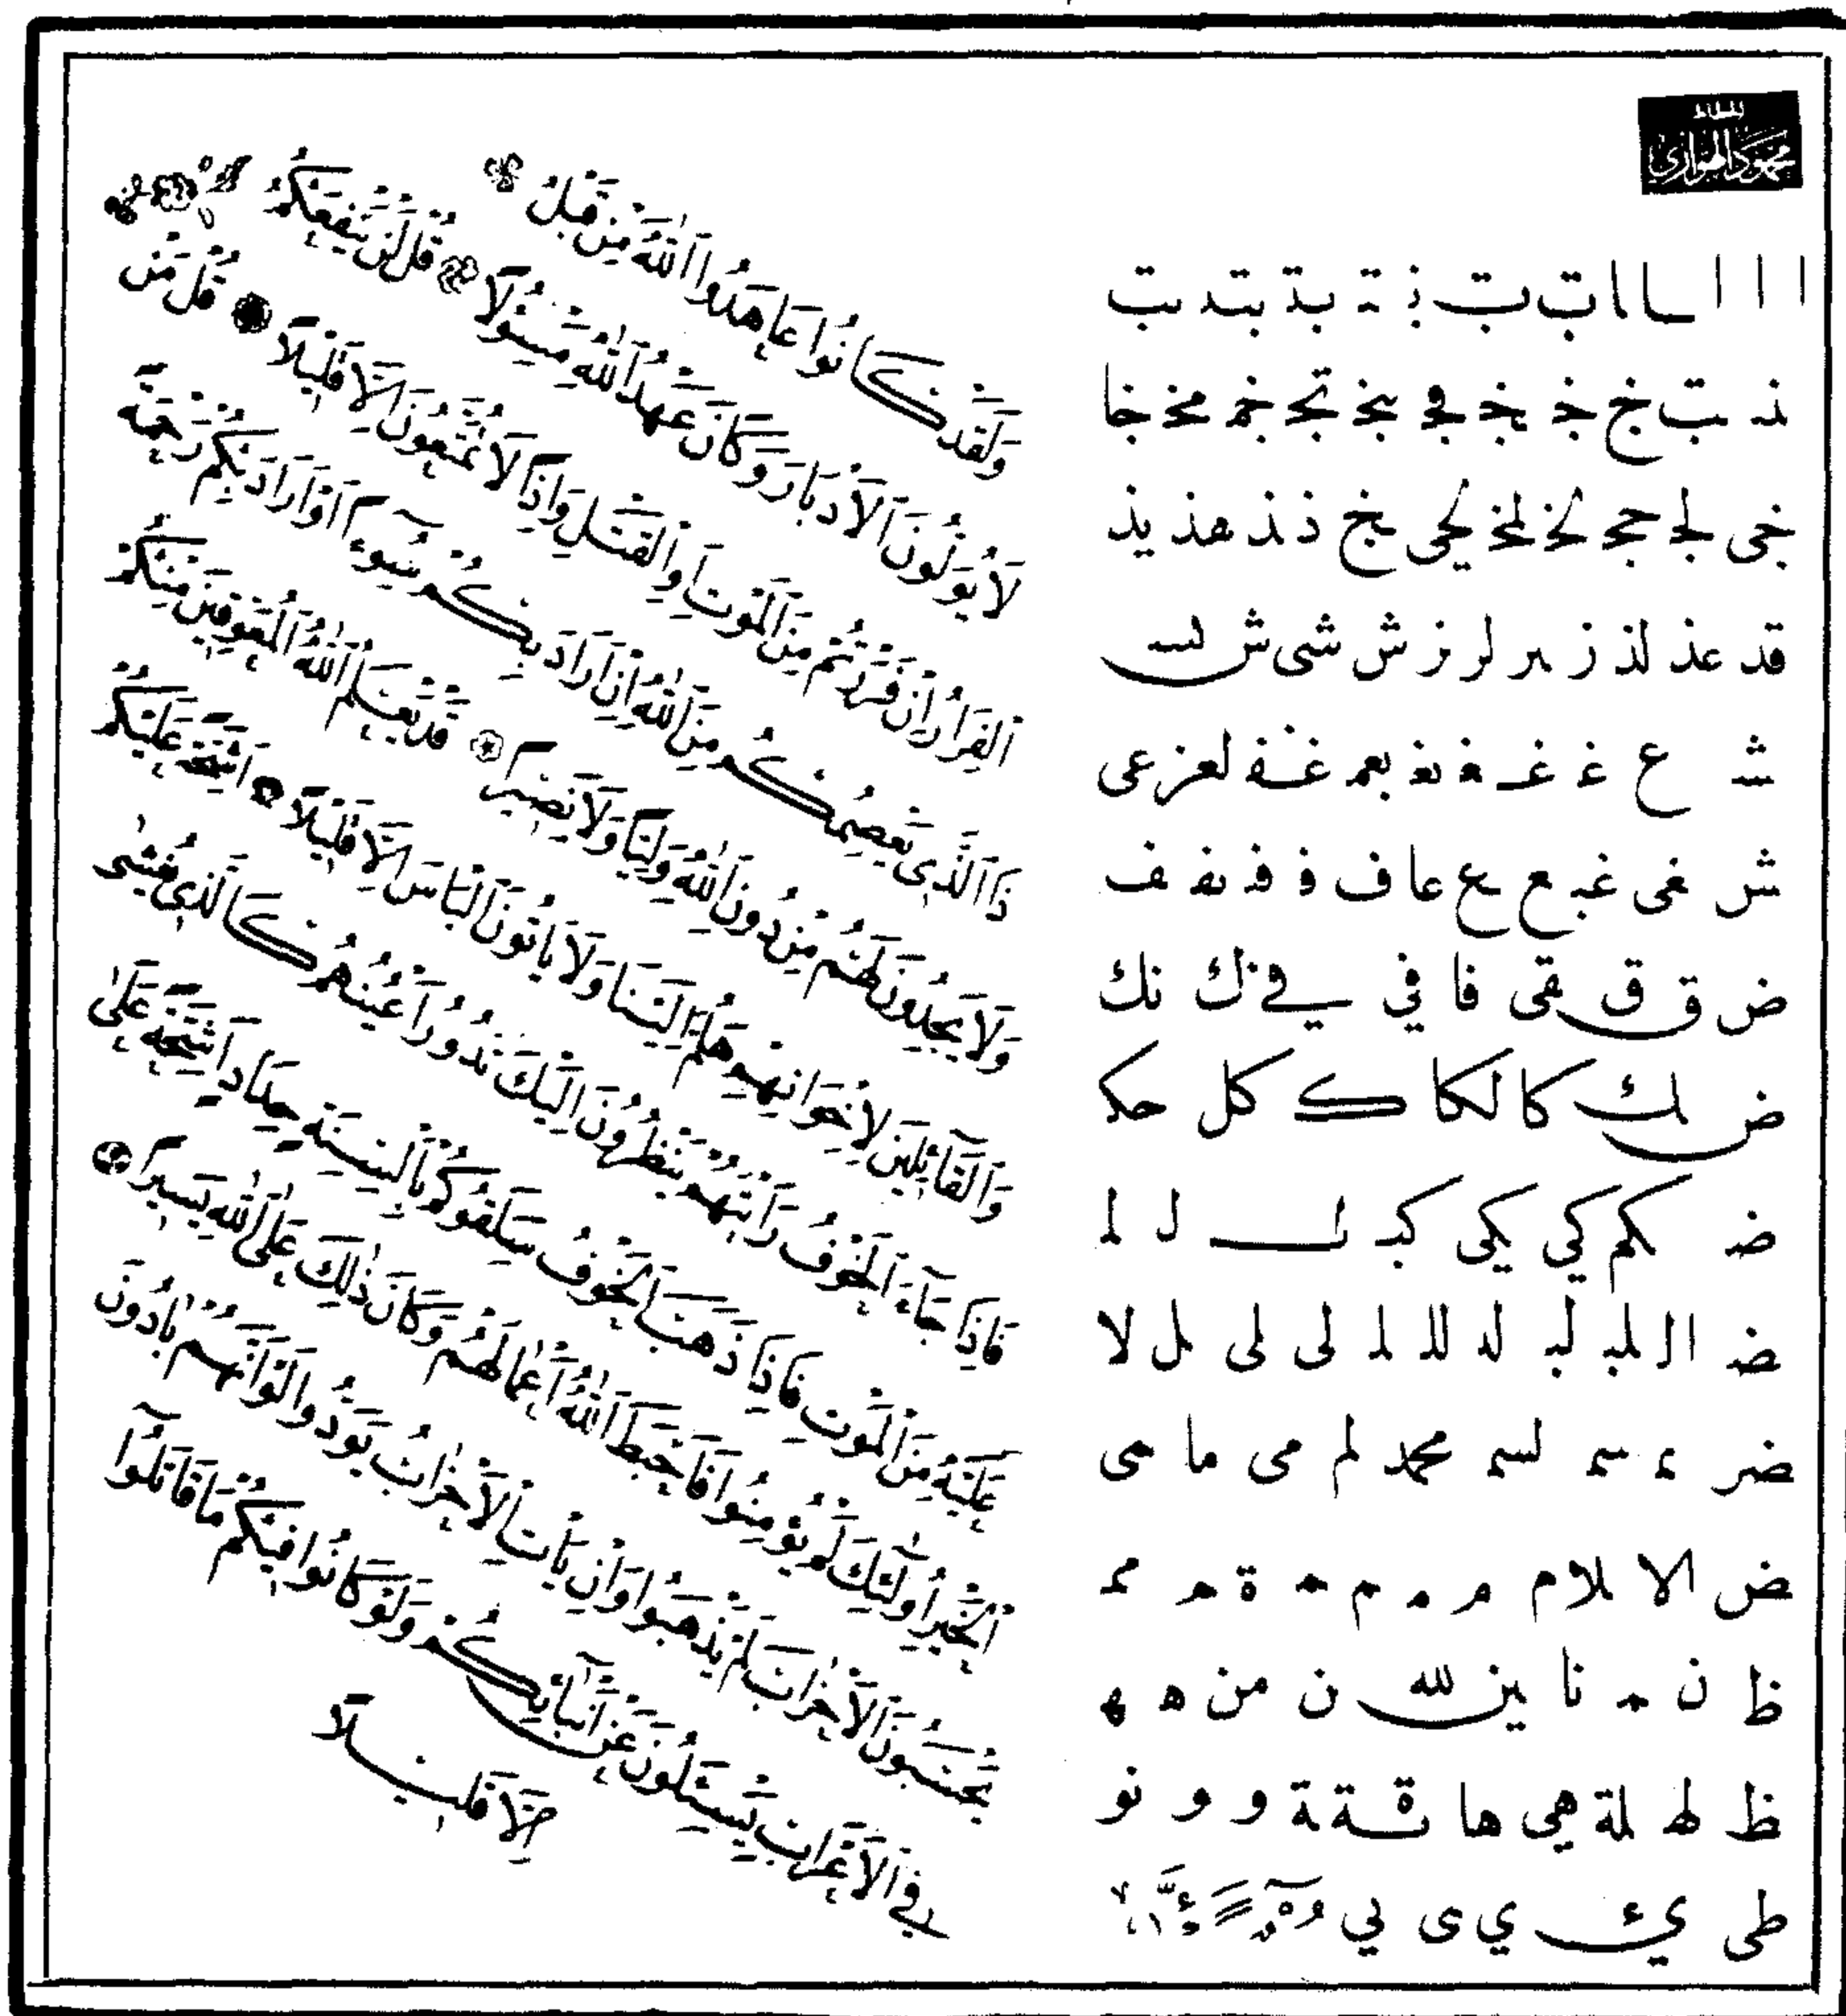 محمود الهواري
ا ا ا ـا ا ا ت ت ذ ة بة بتد تب
ند تب خ خ خ في بخ تج خم مخ خا
خى لج حج لخ لمخ لحى بخ ذ ند هذ يذ
قد عذ لذ ز بر لر نز ش شى ش لسـ
شـ ع غ غـ ـغـ نغ بعم غـفـ لعز عى
ش غى غبـ ع ـع عا ف ف فـ نفـ ف
ض ق ق قى فا في في نك نك
ض لك كا لكا ك كل حكـ
ضـ كم كي يكى كبـ لـ لـ لـ
ضـ الـ لملبـ لبـ لد لل لمـ لى لى مل لا
ضر ء سم لسم محمد لم مى ما مى
ض الا ملا م م مـ م ـمـ ة م مم
ظ ن ـمـ نا ين لله ن من ه ـهـ
ظ لط لمة هي ها قـ ـة ة و و نو
طى ئ ي ى لي
وَلَقَدْ كَانُوا عَاهَدُوا اللّٰهَ مِنْ قَبْلُ
لَا يُوَلُّونَ الْاَدْبَارَ وَكَانَ عَهْدُ اللّٰهِ مَسْئُولًا قُلْ لَنْ يَنْفَعَكُمُ
الْفِرَارُ اِنْ فَرَرْتُمْ مِنَ الْمَوْتِ اَوِ الْقَتْلِ وَاِذًا لَا تُمَتَّعُونَ اِلَّا قَلِيلًا قُلْ مَنْ
ذَا الَّذِي يَعْصِمُكُمْ مِنَ اللّٰهِ اِنْ اَرَادَ بِكُمْ سُوءًا اَوْ اَرَادَ بِكُمْ رَحْمَةً
وَلَا يَجِدُونَ لَهُمْ مِنْ دُونِ اللّٰهِ وَلِيًّا وَلَا نَصِيرًا قَدْ يَعْلَمُ اللّٰهُ الْمُعَوِّقِينَ مِنْكُمْ
وَالْقَآئِلِينَ لِاِخْوَانِهِمْ هَلُمَّ اِلَيْنَا وَلَا يَاْتُونَ الْبَاْسَ اِلَّا قَلِيلًا اَشِحَّةً عَلَيْكُمْ
فَاِذَا جَآءَ الْخَوْفُ رَاَيْتَهُمْ يَنْظُرُونَ اِلَيْكَ تَدُورُ اَعْيُنُهُمْ كَالَّذِي يُغْشٰى
عَلَيْهِ مِنَ الْمَوْتِ فَاِذَا ذَهَبَ الْخَوْفُ سَلَقُوكُمْ بِاَلْسِنَةٍ حِدَادٍ اَشِحَّةً عَلَى
الْخَيْرِ اُولٰٓئِكَ لَمْ يُؤْمِنُوا فَاَحْبَطَ اللّٰهُ اَعْمَالَهُمْ وَكَانَ ذٰلِكَ عَلَى اللّٰهِ يَسِيرًا
يَحْسَبُونَ الْاَحْزَابَ لَمْ يَذْهَبُوا وَاِنْ يَاْتِ الْاَحْزَابُ يَوَدُّوا لَوْ اَنَّهُمْ بَادُونَ
فِي الْاَعْرَابِ يَسْئَلُونَ عَنْ اَنْبَآئِكُمْ وَلَوْ كَانُوا فِيكُمْ مَا قَاتَلُوٓا
اِلَّا قَلِيلًا